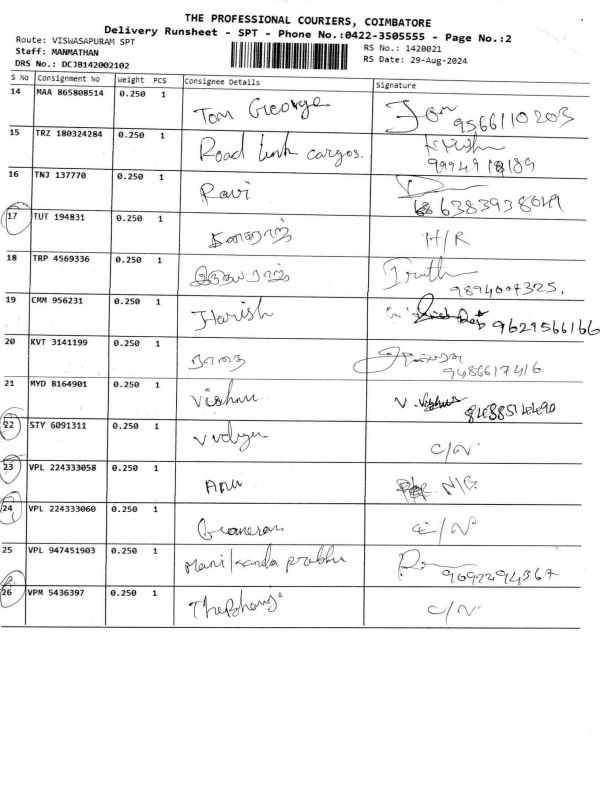 THE PROFESSIONAL COURIERS, COIMBATORE
Delivery Runsheet - SPT - Phone No.:0422-3505555 - Page No.:2
Route: VISWASAPURAM SPT RS No.: 1420021
Staff: MANMATHAN RS Date: 29-Aug-2024
DRS No.: DCJB142002102
S No Consignment No Weight PCS Consignee Details Signature
14 MAA 865808514 0.250 1 Tom George 9566110203
15 TRZ 180324284 0.250 1 Road link cargos.
16 TNJ 137770 0.250 1 Ravi 6383938049
17 TUT 194831 0.250 1 H/R
18 TRP 4569336 0.250 1 9894007325.
19 CMM 956231 0.250 1 Harish 9629566166
20 KVT 3141199 0.250 1 9486617416
21 MYD 8164901 0.250 1 Vishnu
22 STY 6091311 0.250 1 Vidya C/N
23 VPL 224333058 0.250 1 Anu
24 VPL 224333060 0.250 1
25 VPL 947451903 0.250 1 Manikanda prabhu 9092294367
26 VPM 5436397 0.250 1 C/N